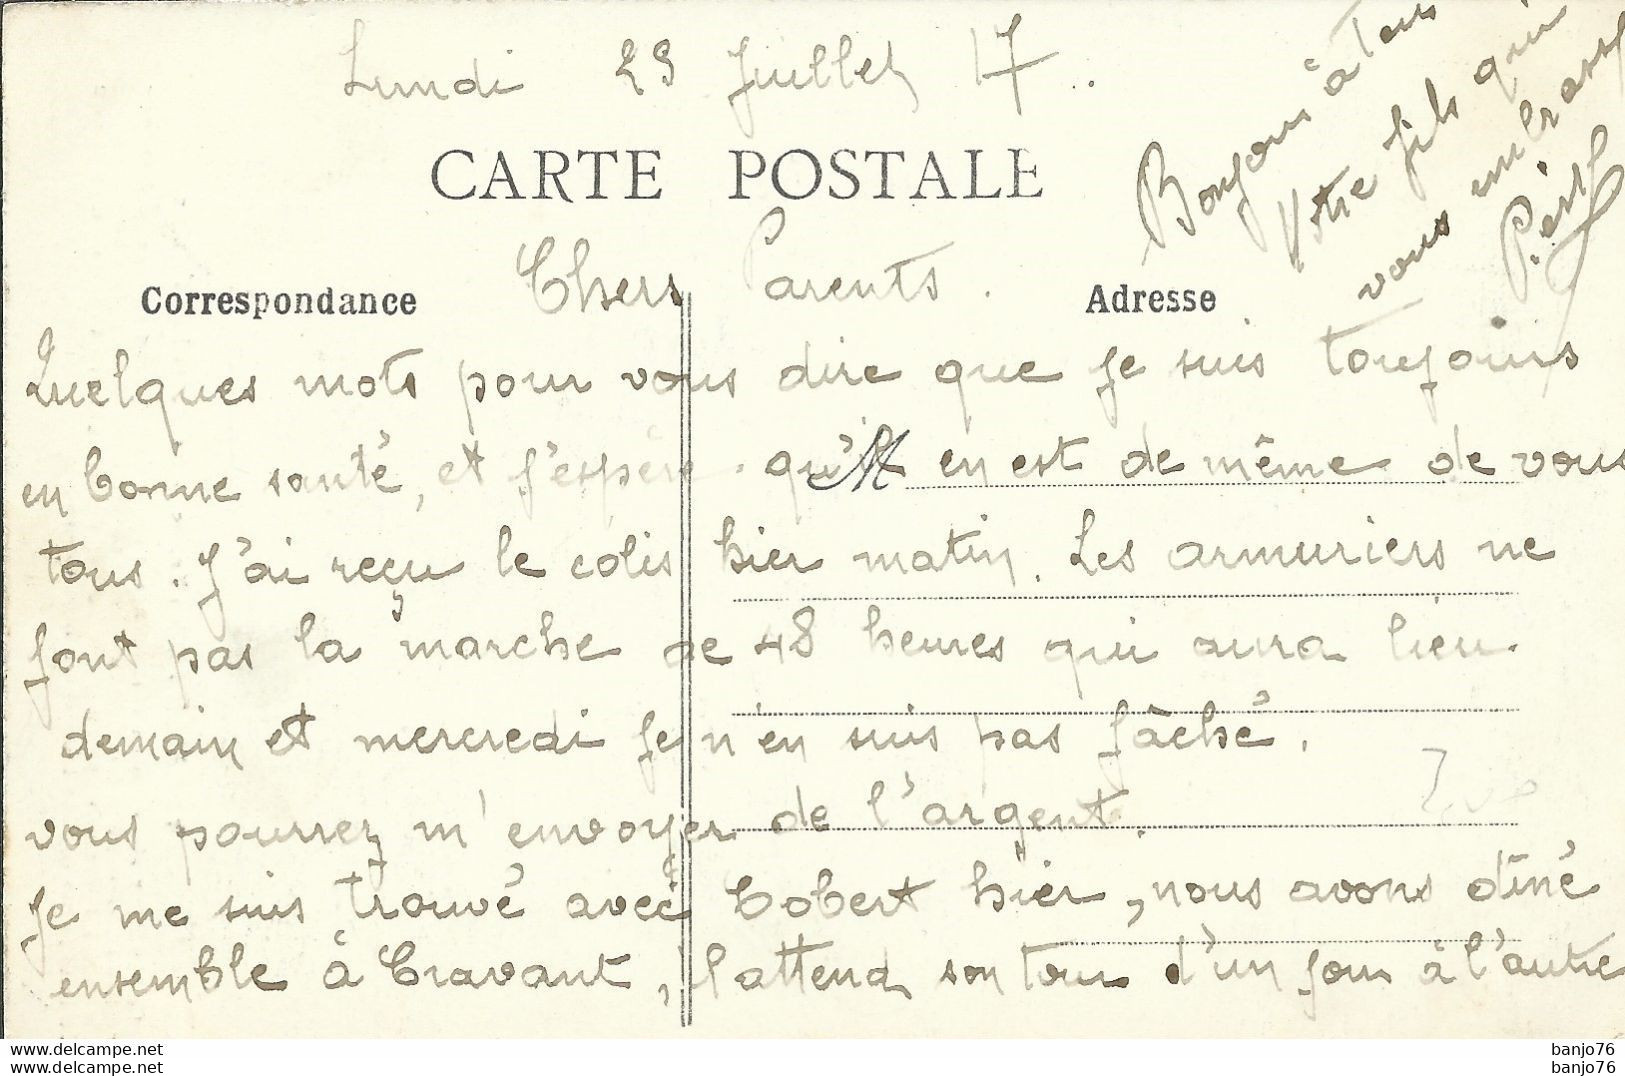 Lundi 23 Juillet 17.
CARTE POSTALE
Correspondance
Adresse
Chers Parents.
Quelques mots pour vous dire que je suis toujours
en bonne santé, et j'espère qu'il en est de même de vous
tous. J'ai reçu le colis hier matin. Les armuriers ne
font pas la marche de 48 heures qui aura lieu
demain et mercredi je n'en suis pas fâché.
vous pourrez m'envoyer de l'argent.
Je me suis trouvé avec Cobert hier, nous avons dîné
ensemble à Cravant, l'attend son tour d'un jour à l'autre
Bonjour à Tous
Votre fils qui
vous embrasse
www.delcampe.net
www.delcampe.net
banjo76
banjo76